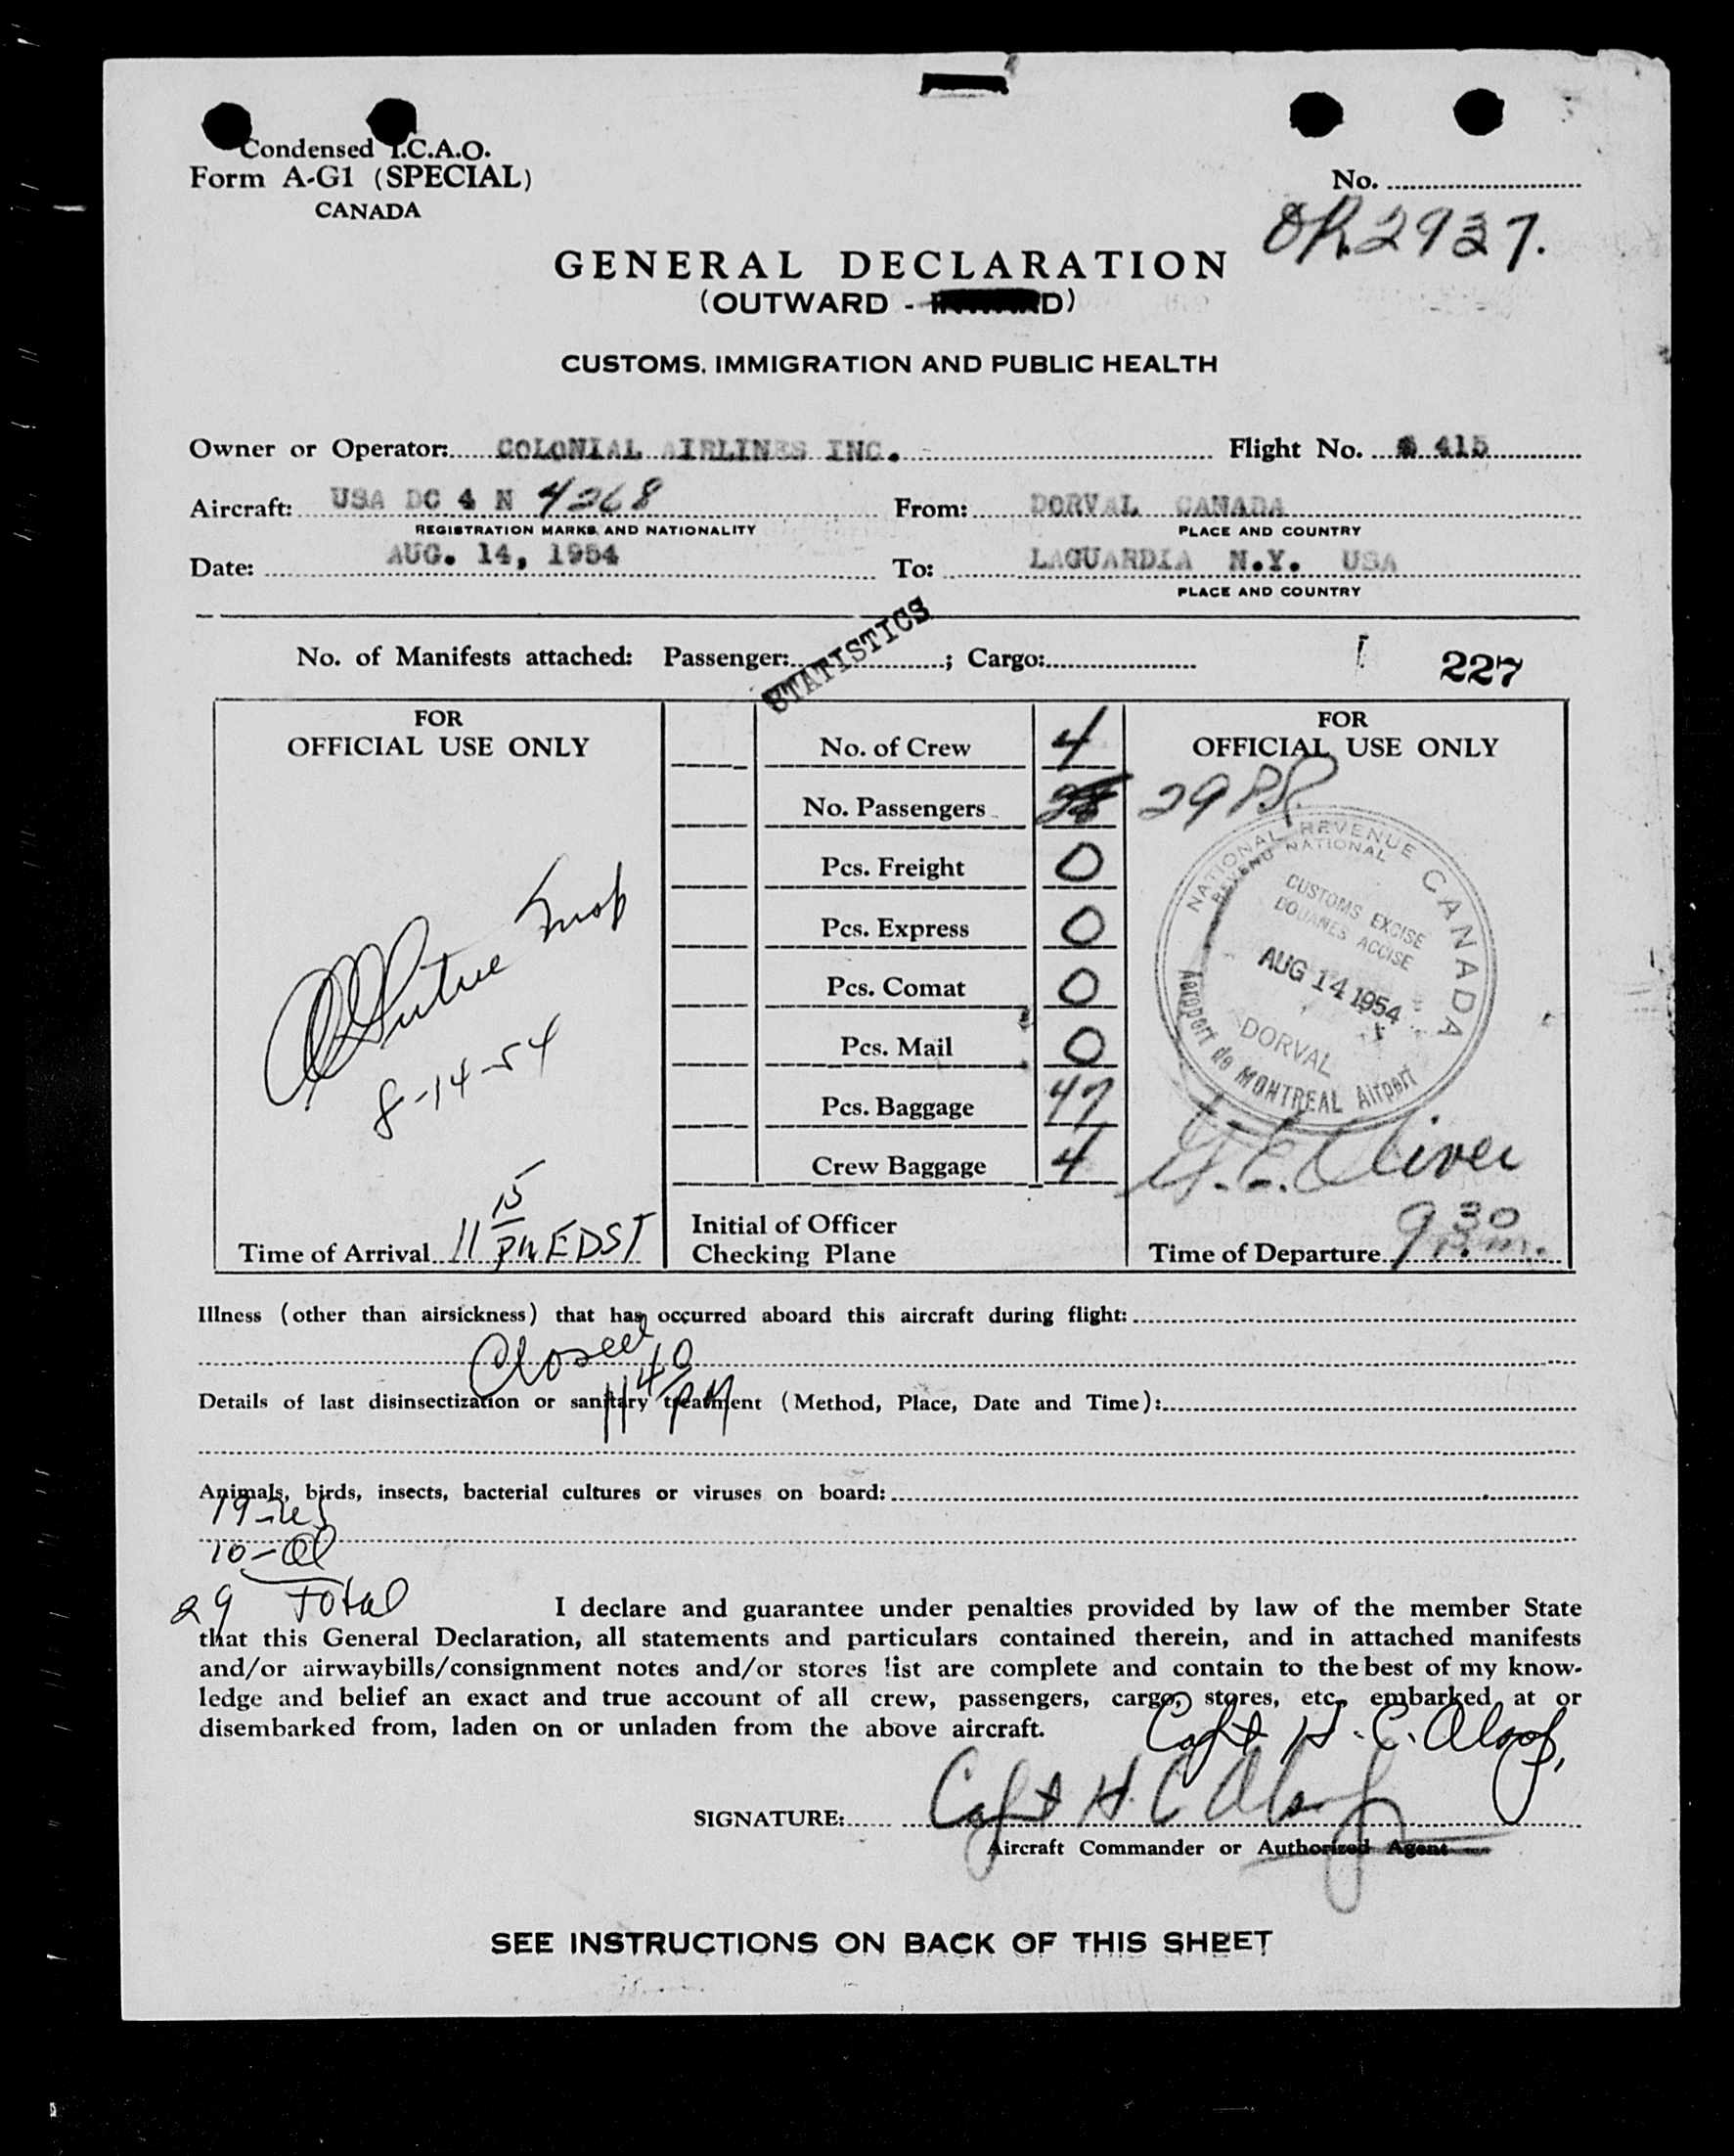 Condensed I.C.A.O.
Form A-G1 (SPECIAL)
CANADA
No.
2937.
GENERAL DECLARATION
(OUTWARD - D)
CUSTOMS, IMMIGRATION AND PUBLIC HEALTH
Owner or Operator: COLONIAL AIRLINES INC. Flight No. 415
Aircraft: USA DC 4 N 4268 From: DORVAL CANADA
REGISTRATION MARKS AND NATIONALITY PLACE AND COUNTRY
Date: AUG. 14, 1954 To: LAGUARDIA N.Y. USA
PLACE AND COUNTRY
STATISTICS
No. of Manifests attached: Passenger: ; Cargo: 227
FOR
OFFICIAL USE ONLY
8-14-54
Time of Arrival 11 15 PM EDST
No. of Crew 4
No. Passengers 28
Pcs. Freight 0
Pcs. Express 0
Pcs. Comat 0
Pcs. Mail 0
Pcs. Baggage 47
Crew Baggage 4
Initial of Officer
Checking Plane
FOR
OFFICIAL USE ONLY
29
NATIONAL REVENUE CANADA
REVENU NATIONAL
CUSTOMS EXCISE
DOUANES ACCISE
AUG 14 1954
DORVAL
Aéroport de MONTREAL Airport
Oliver
Time of Departure 9 30 P.m.
Illness (other than airsickness) that has occurred aboard this aircraft during flight:
Closed
11 40 PM
Details of last disinsectization or sanitary treatment (Method, Place, Date and Time):
Animals, birds, insects, bacterial cultures or viruses on board:
19
10 -
29 Total
I declare and guarantee under penalties provided by law of the member State
that this General Declaration, all statements and particulars contained therein, and in attached manifests
and/or airwaybills/consignment notes and/or stores list are complete and contain to the best of my know-
ledge and belief an exact and true account of all crew, passengers, cargo, stores, etc. embarked at or
disembarked from, laden on or unladen from the above aircraft.
Capt H. C.
SIGNATURE: Capt H. C
Aircraft Commander or Authorized Agent
SEE INSTRUCTIONS ON BACK OF THIS SHEET